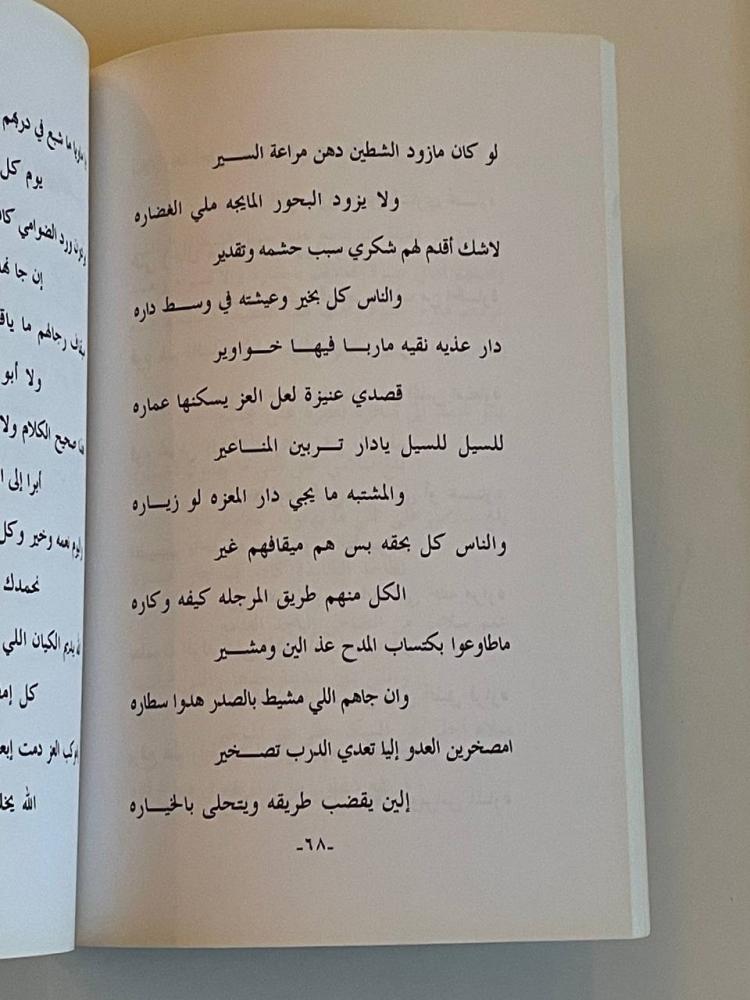 لو كان مازود الشطين دهن مراعة السير
ولا يزود البحور المايجه ملي الغضاره
لاشك أقدم لهم شكري سبب حشمه وتقدير
والناس كل بخير وعيشته في وسط داره
دار عذيه نقيه ماربا فيها خواوير
قصدي عنيزة لعل العز يسكنها عماره
للسيل للسيل يادار تربين المناعير
والمشتبه ما يجي دار المعزه لو زياره
والناس كل بحقه بس هم ميقافهم غير
الكل منهم طريق المرجله كيفه وكاره
ماطاوعوا بكتساب المدح عذ الين ومشير
وان جاهم اللي مشيط بالصدر هدوا سطاره
امصخرين العدو إليا تعدي الدرب تصخير
إلين يقضب طريقه ويتحلى بالخياره
-٦٨-
يوم كل
إن جا
رجاهم ما
ولا أبو
صحيح الكلام ولا
أبرا إلى
نعمه وخير وكل
نحمدك
الكيان اللي
كل
العز دمت
الله